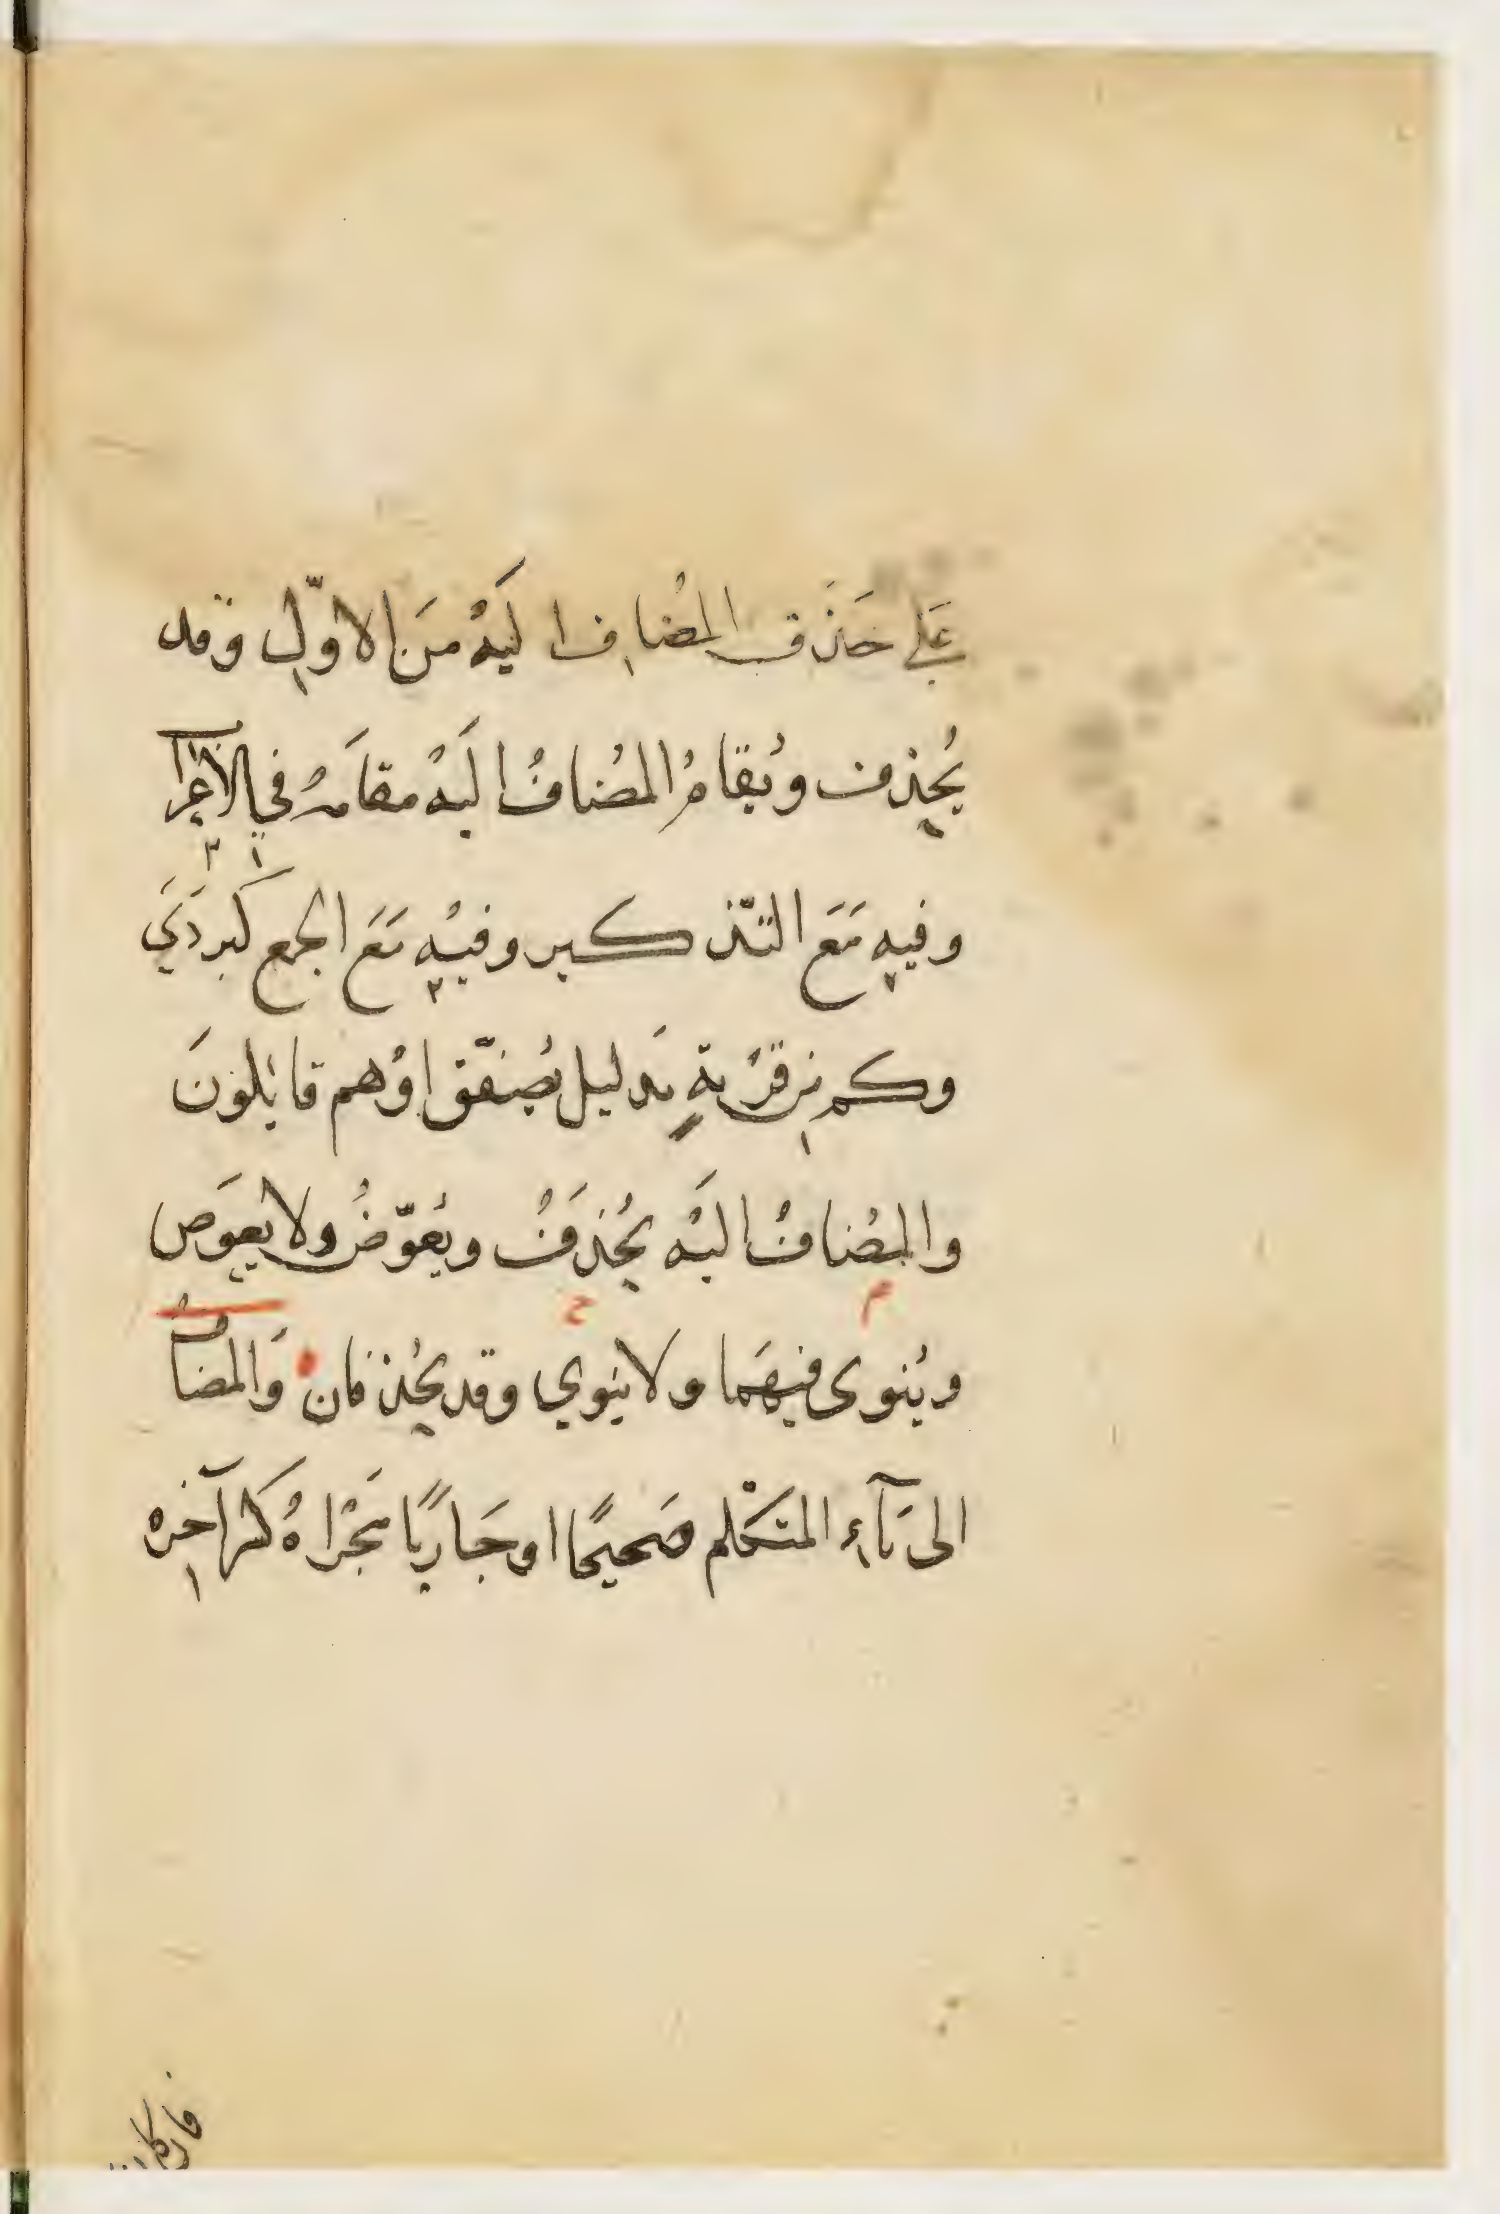 عَلٰى حَذف المُضاف اليَهْ منَ الاوّل وقد
يُحذف ويُقامُ المُضافُ اليَهْ مقامَهُ في الاعرا
وفيه مَعَ التّذكير وفيْه مَعَ الجمع كبردَىٰ
وكم من قرْيةٍ بَدليل يُصفّق اوْهم قائلونَ
والمُضافُ اليَهْ يُحْذَفُ ويُعوّضُ ولا يعوَض
ويُنوى فيهَما ولا ينوي وقد يُحْذفان وَالمضافُ
الى يَآءِ المتكَلم صَحيحًا اوجَاريًا مَجْراهُ كسْر آخره
فان كان